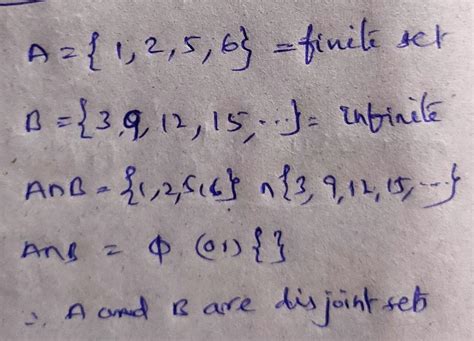 A = { 1, 2, 5, 6} = finite set
B = {3, 9, 12, 15, ...} = infinite
A∩B = {1, 2, 5, 6} ∩ {3, 9, 12, 15, ...}
A∩B = φ (or) { }
∴ A and B are disjoint sets